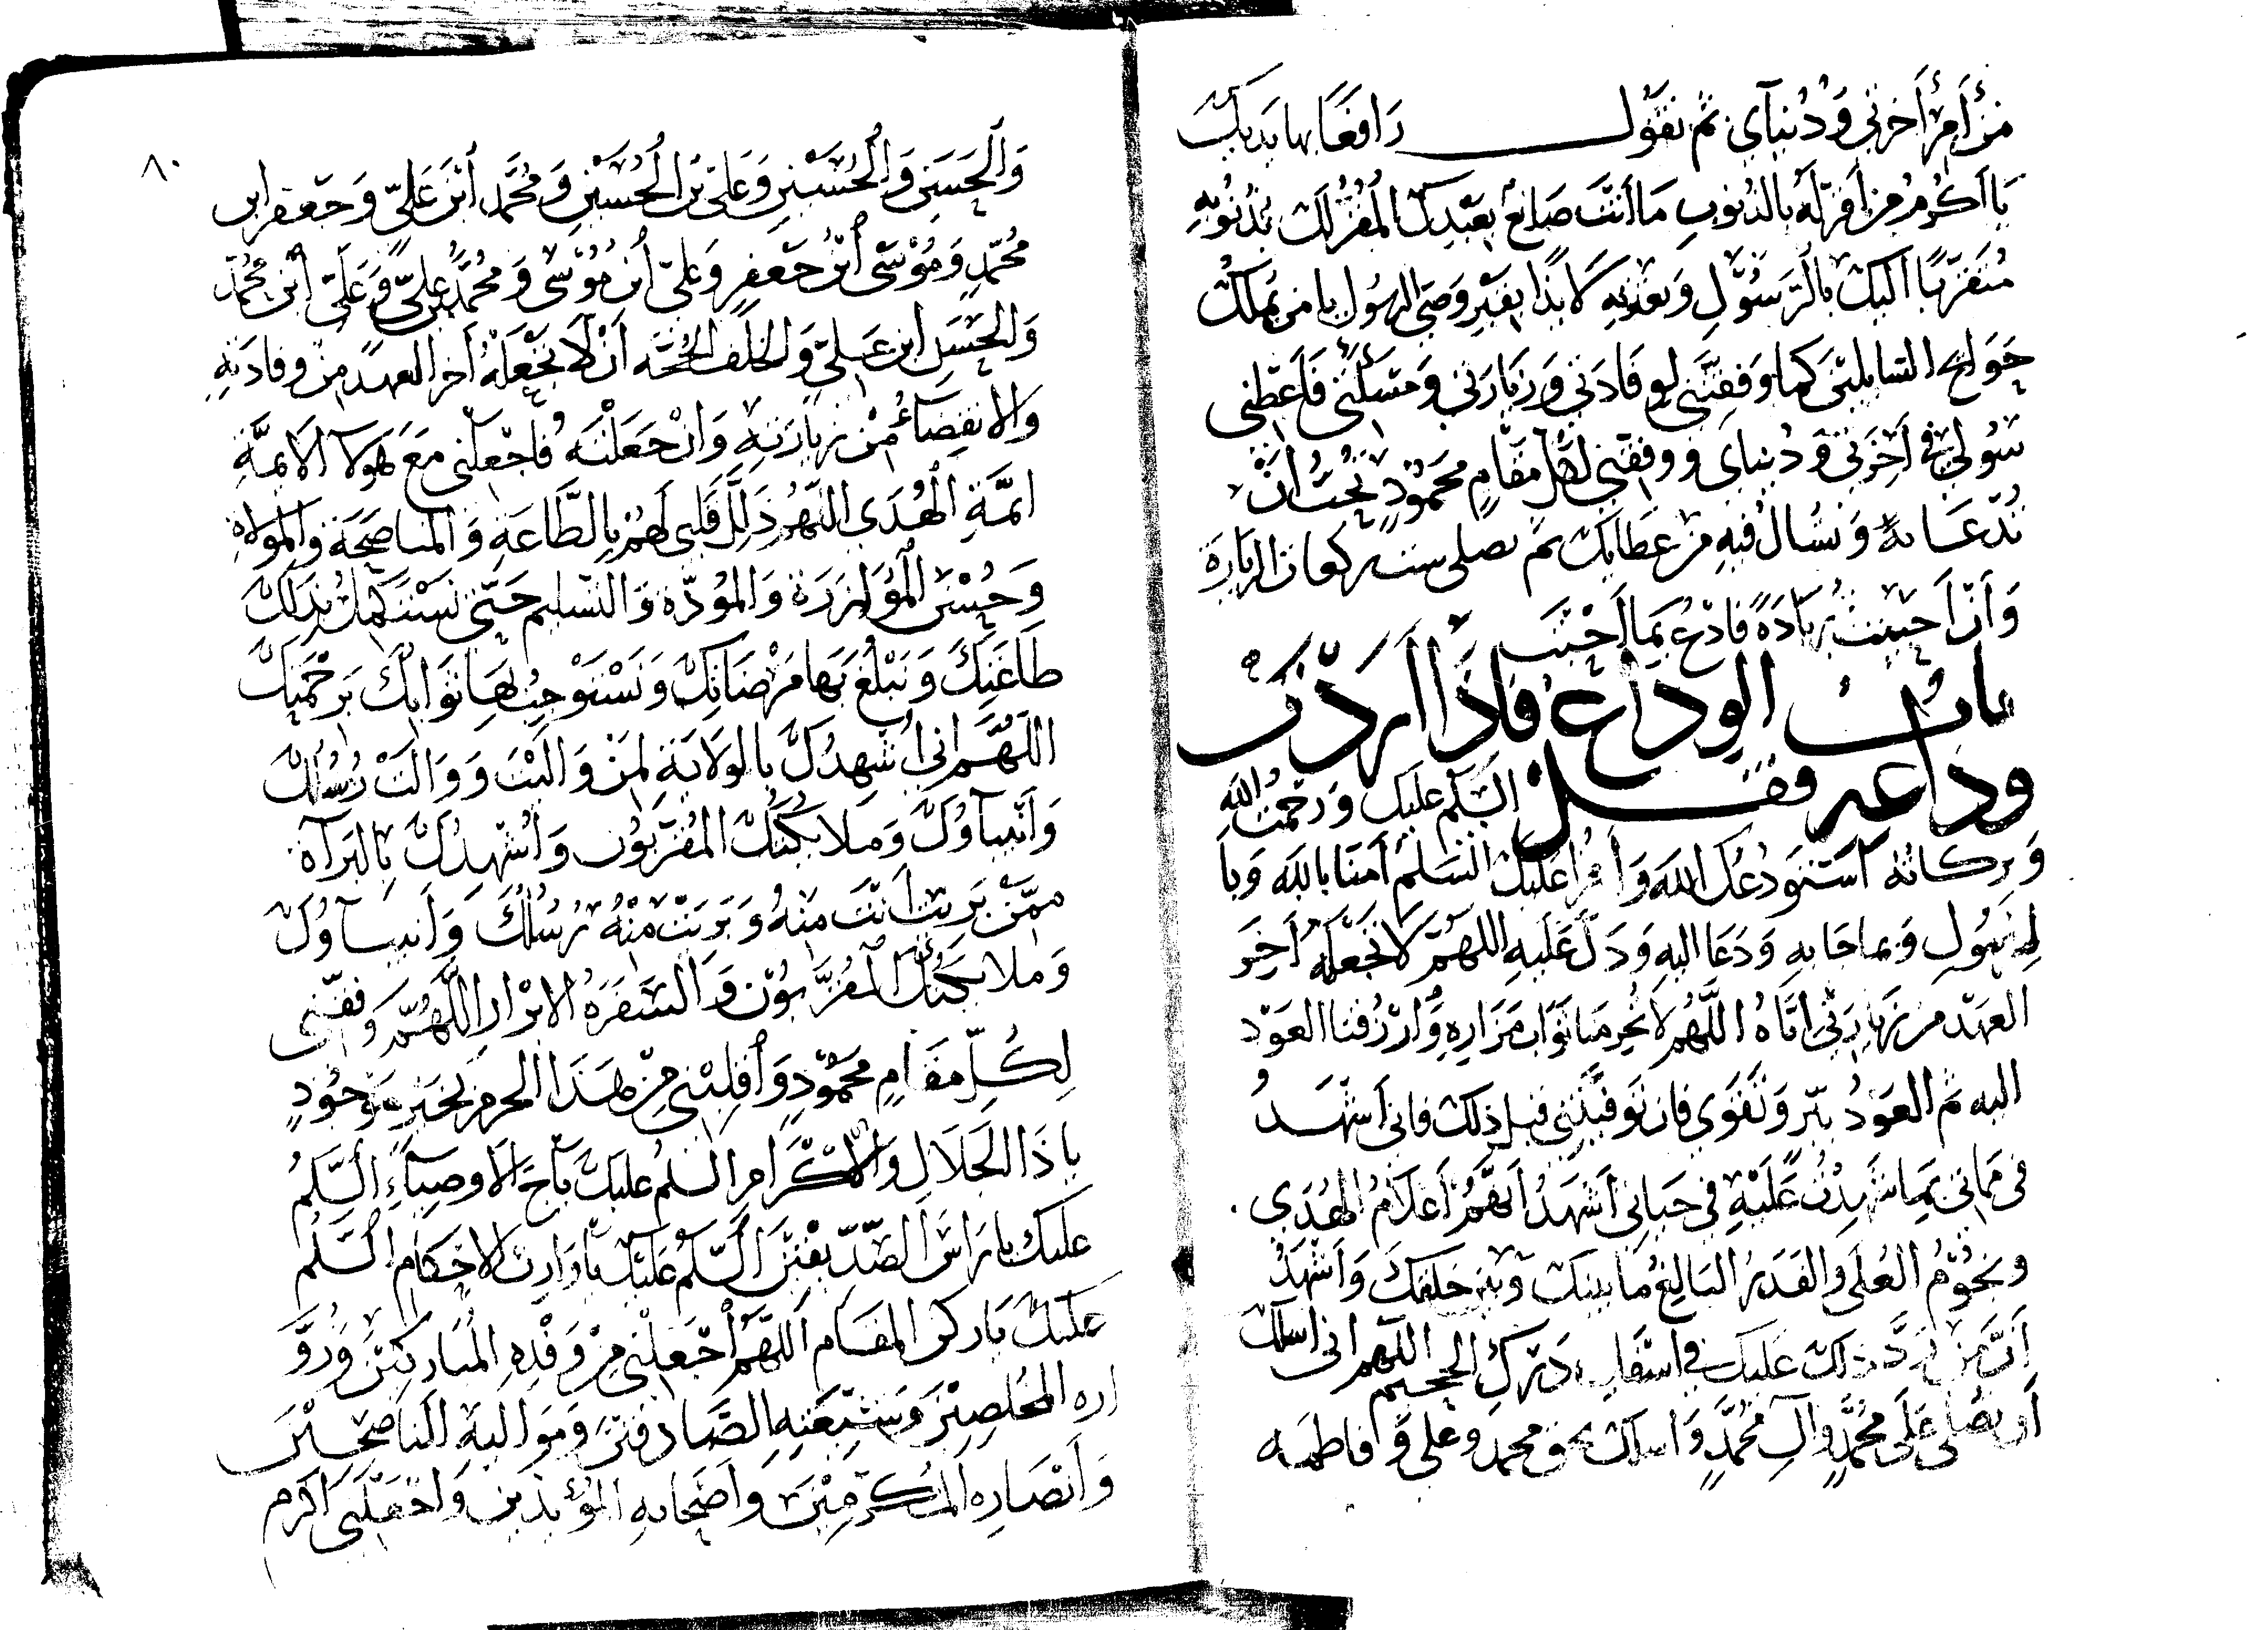 من أمر أخرتي ودنياي ثم تقول رافعا بها يديك
يا اكرم من اقر له بالذنوب ما انت صانع بعبدك المقر لك بذنوبه
متقربا اليك بالرسول وبعترته لائذا بقبر وصي الرسول يا من يملك
حوايج السايلين كما وفقتني لوفادتي وزيارتي ومسلتي فاعطني
سولي في اخرتي ودنياي ووفقني لكل مقام محمود تحب أن
تدعا به وتسال فيه من عطايك ثم تصلى ست ركعات الزيارة
وان احببت زيادة فادع بما احببت
باب الوداع فاذا اردت
وداعه فقل السلم عليك ورحمت الله
وبركاته استودعك الله واقرا عليك السلم امنا بالله وبا
لرسول وبما جا به ودعا اليه ودل عليه اللهم لا تجعله اخر
العهد من زيارتي اياه اللهم لا تحرمنا ثواب مزاره وارزقنا العود
اليه ثم العود ببر وتقوى فان توفيتني قبل ذلك فاني أشهد
في مماتي بما شهدت عليه في حياتي أشهد أنهم أعلام الهدى
ونجوم العلى والقدر البالغ ما بينك وبين خلقك واشهد
أن من رد ذلك عليك في اسفل درك الجحيم اللهم اني اسلك
أن تصلى على محمد وآل محمد واسلك بحق محمد وعلى وفاطمه
٨٠
والحسن والحسين وعلى بن الحسين ومحمد ابن على وجعفر ابن
محمد وموسى ابن جعفر وعلى ابن موسى ومحمد بن على وعلى ابن محمد
والحسن ابن على والخلف الحجه أن لا تجعله أخر العهد من وفادته
والانقضاء من زيارته وان جعلته فاجعلني مع هولآ الايمة
ايمة الهدى اللهم ذلل قلبى لهم بالطاعة والمناصحة والموالاة
وحسن الموازرة والمودة والتسليم حتى نستكمل بذلك
طاعتك ونبلغ بها مرضاتك ونستوجب بها ثوابك برحمتك
اللهم اني أشهدك بالولاية لمن واليت ووالت رسلك
وأنبياوك وملايكتك المقربون وأشهدك بالبرآة
ممن بريت أنت منه وبريت منه رسلك وأنبياوك
وملايكتك المقربون والسفرة الابرار اللهم وفقني
لكل مقام محمود وأقلبني من هذا الحرم بخير موجود
يا ذا الجلال والاكرام السلم عليك ياتاج الاوصياء السلم
عليك يا راس الصديقين السلم عليك ياوارث الاحكام السلم
عليك ياركن المقام اللهم اجعلني من وفده المباركين وزو
اره المخلصين وشيعته الصادقين ومواليه الناصحين
وأنصاره المكرمين واصحابه المؤيدين واجعلنى اكرم